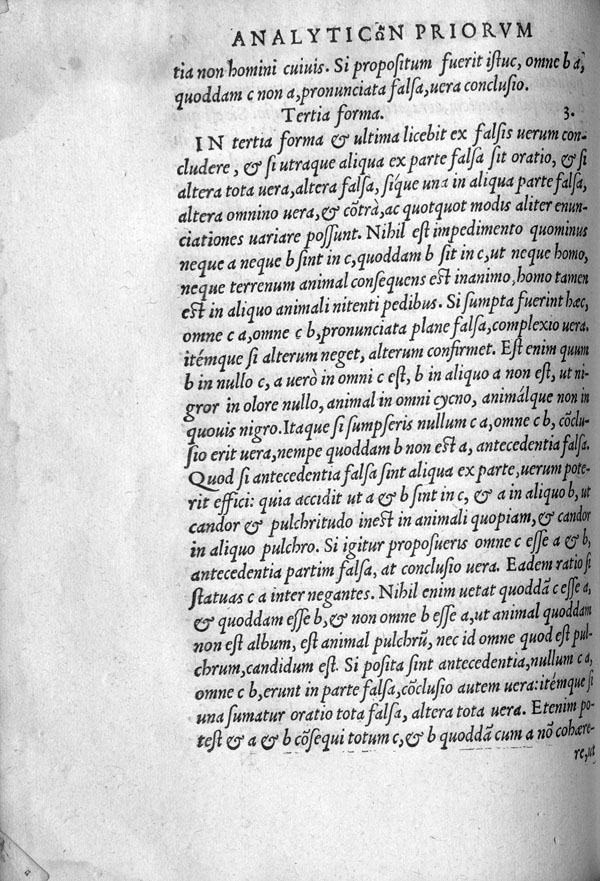 ANALYTICῶN PRIORVM
tia non homini cuiuis. Si propositum fuerit istuc, omne b a,
quoddam c non a, pronunciata falsa, uera conclusio.
Tertia forma. 3.
IN tertia forma & ultima licebit ex falsis uerum con-
cludere, & si utraque aliqua ex parte falsa sit oratio, & si
altera tota uera, altera falsa, síque una in aliqua parte falsa,
altera omnino uera, & cõtrà, ac quotquot modis aliter enun-
ciationes uariare possunt. Nihil est impedimento quominus
neque a neque b sint in c, quoddam b sit in c, ut neque homo,
neque terrenum animal consequens est inanimo, homo tamen
est in aliquo animali nitenti pedibus. Si sumpta fuerint hæc,
omne c a, omne c b, pronunciata plane falsa, complexio uera.
itémque si alterum neget, alterum confirmet. Est enim quum
b in nullo c, a uerò in omni c est, b in aliquo a non est, ut ni-
gror in olore nullo, animal in omni cycno, animálque non in
quouis nigro. Itaque si sumpseris nullum c a, omne c b, cõclu-
sio erit uera, nempe quoddam b non est a, antecedentia falsa.
Quod si antecedentia falsa sint aliqua ex parte, uerum pote-
rit effici: quia accidit ut a & b sint in c, & a in aliquo b, ut
candor & pulchritudo inest in animali quopiam, & candor
in aliquo pulchro. Si igitur proposueris omne c esse a & b,
antecedentia partim falsa, at conclusio uera. Eadem ratio si
statuas c a inter negantes. Nihil enim uetat quoddã c esse a,
& quoddam esse b, & non omne b esse a, ut animal quoddam
non est album, est animal pulchrũ, nec id omne quod est pul-
chrum, candidum est. Si posita sint antecedentia, nullum c a,
omne c b, erunt in parte falsa, cõclusio autem uera: itémque si
una sumatur oratio tota falsa, altera tota uera. Etenim po-
test & a & b cõsequi totum c, & b quoddã cum a nõ cohære-
re, ut